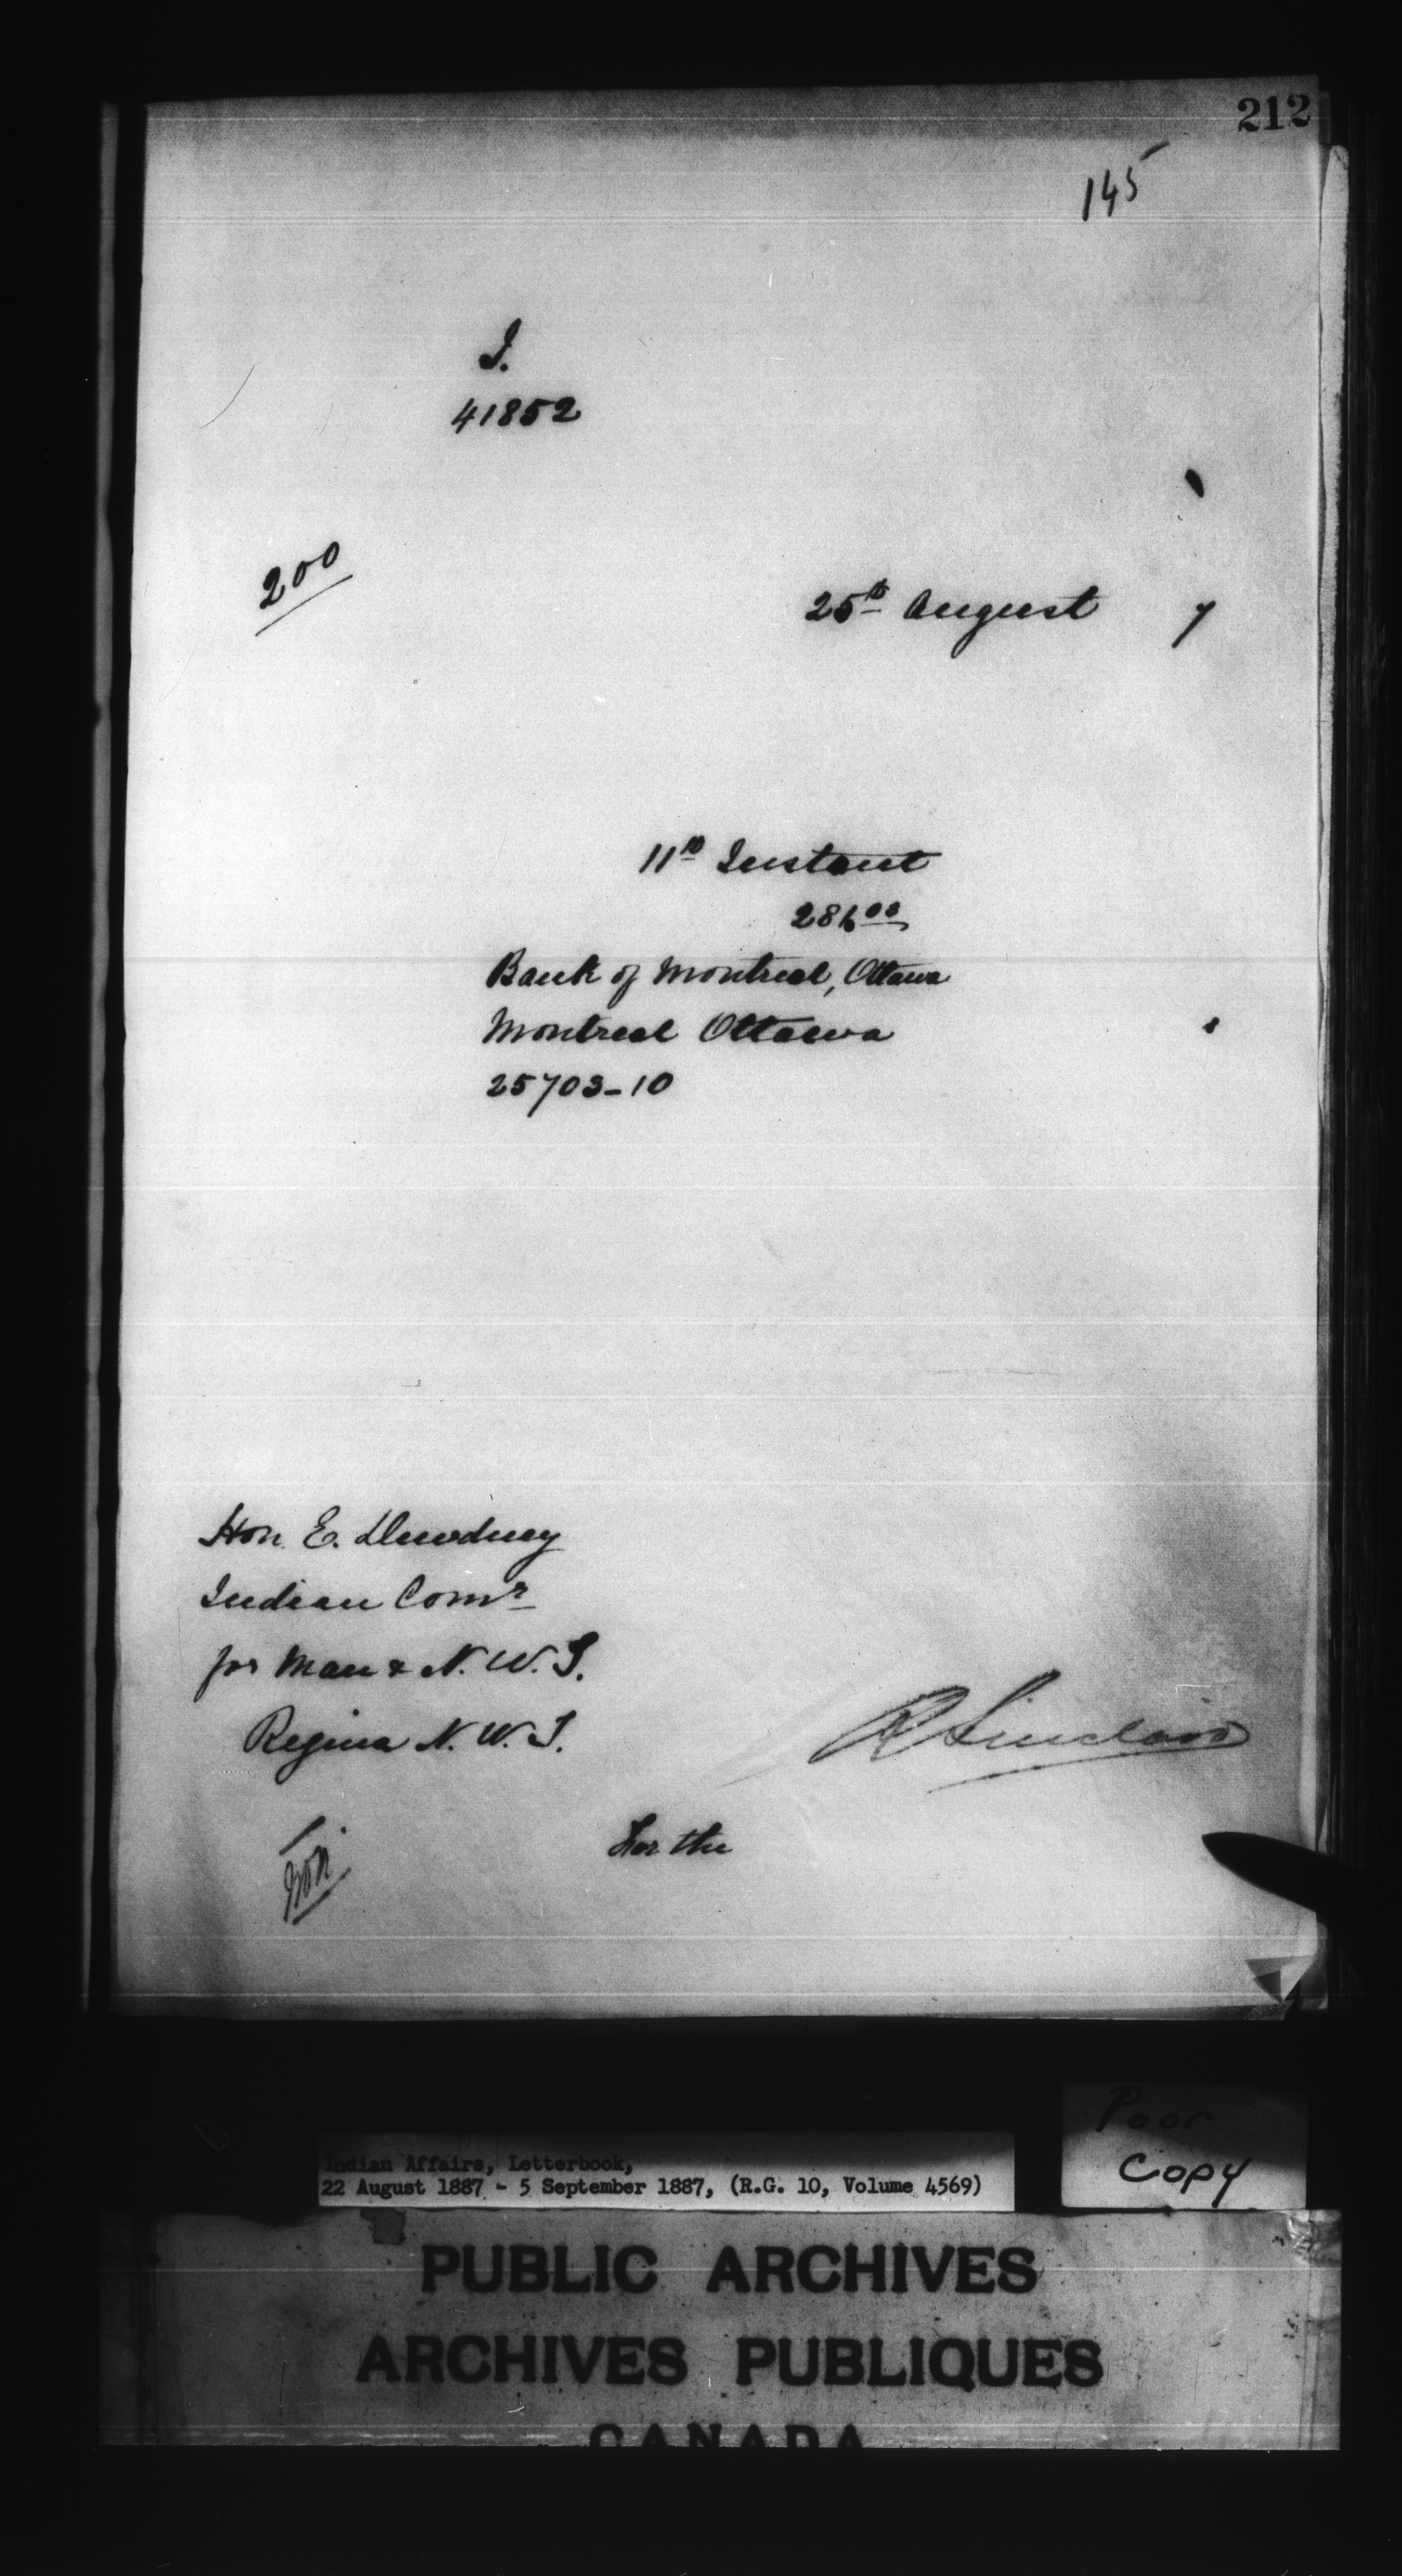 212
145
I.
41852
200
25th August 7
11th Instant
286 03
Bank of Montreal, Ottawa
Montreal Ottawa
25703-10
Hon. E. Dewdney
Indian Comr
for Man & N. W. T.
Regina N. W. T.
R Sinclair
For the
Indian Affairs, Letterbook,
22 August 1887 - 5 September 1887, (R.G. 10, Volume 4569)
Poor
Copy
PUBLIC ARCHIVES
ARCHIVES PUBLIQUES
CANADA